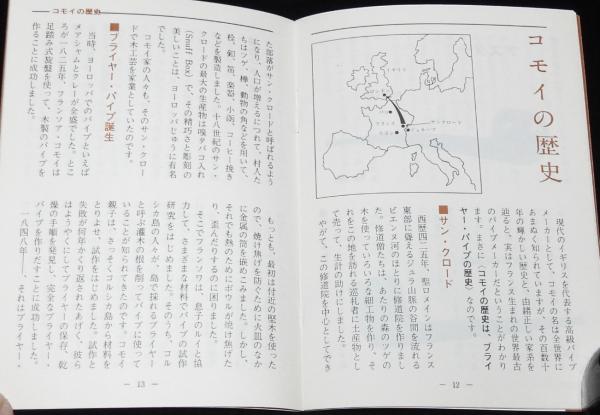 コモイの歴史
現代のイギリスを代表する高級パイプ
メーカーとして、コモイの名は全世界に
あまねく知られていますが、その百数十
年の輝かしい歴史と、由緒正しい家系を
辿ると、実はフランス生まれの世界最古
のパイプメーカーだということがわかり
ます。まさに〈コモイの歴史は、ブライ
ヤー・パイプの歴史〉なのです。
■サン・クロード
西暦四二五年、聖ロメインはフランス
東部に聳えるジュラ山脈の谷間を流れる
ビエンヌ河のほとりに修道院を作りまし
た。修道僧たちは、あたりの森のツゲの
木を使っていろいろな細工物を作り、そ
れをこの地を訪れる巡礼者に土産物とし
て売って、生計の助けにしました。
やがて、この修道院を中心としてでき
— 12 —
コモイの歴史
た部落がサン・クロードと呼ばれるよう
になり、人口が増えるにつれて、村人た
ちはツゲ、樺、動物の角などを用いて、
栓、釦、笛、楽器、小函、コーヒー挽き
などを製造しました。十八世紀のサン・
クロードの最大の生産物は嗅タバコ入れ
(Snuff Box) で、その精巧さと彫刻の
美しいことは、ヨーロッパじゅうに有名
でした。
コモイ家の人々も、そのサン・クロー
ドで木工芸を家業としていたのです。
■ブライヤー・パイプ誕生
当時、ヨーロッパでのパイプといえば
メアシャムとクレーが全盛でした。とこ
ろが一八二五年、フランソア・コモイは
足踏み式旋盤を使って、木製のパイプを
作ることに成功しました。
もっとも、最初は付近の堅木を使った
ので、焼け焦げを防ぐために火皿のなか
に金属の筒を嵌めこみました。しかし、
それでも熱のためにボウルが焼け焦げた
り、歪んだりするのに困りました。
そこでフランソワは、息子のルイと協
力して、さまざまな材料でパイプの試作
研究をはじめました。そのうち、コル
シカ島の人々が、島で採れるブライヤー
と呼ぶ灌木の根を削ってパイプに使って
いることが知られてきたのです。コモイ
親子は、さっそくコルシカ島から材料を
とりよせ、試作をはじめました。試作と
失敗が何年かくり返されたあげく、彼ら
はようやくにしてブライヤーの保存、乾
燥の手順を発見し、完全なブライヤー・
パイプを作りだすことに成功しました。
一八四八年——、それはブライヤー・
— 13 —